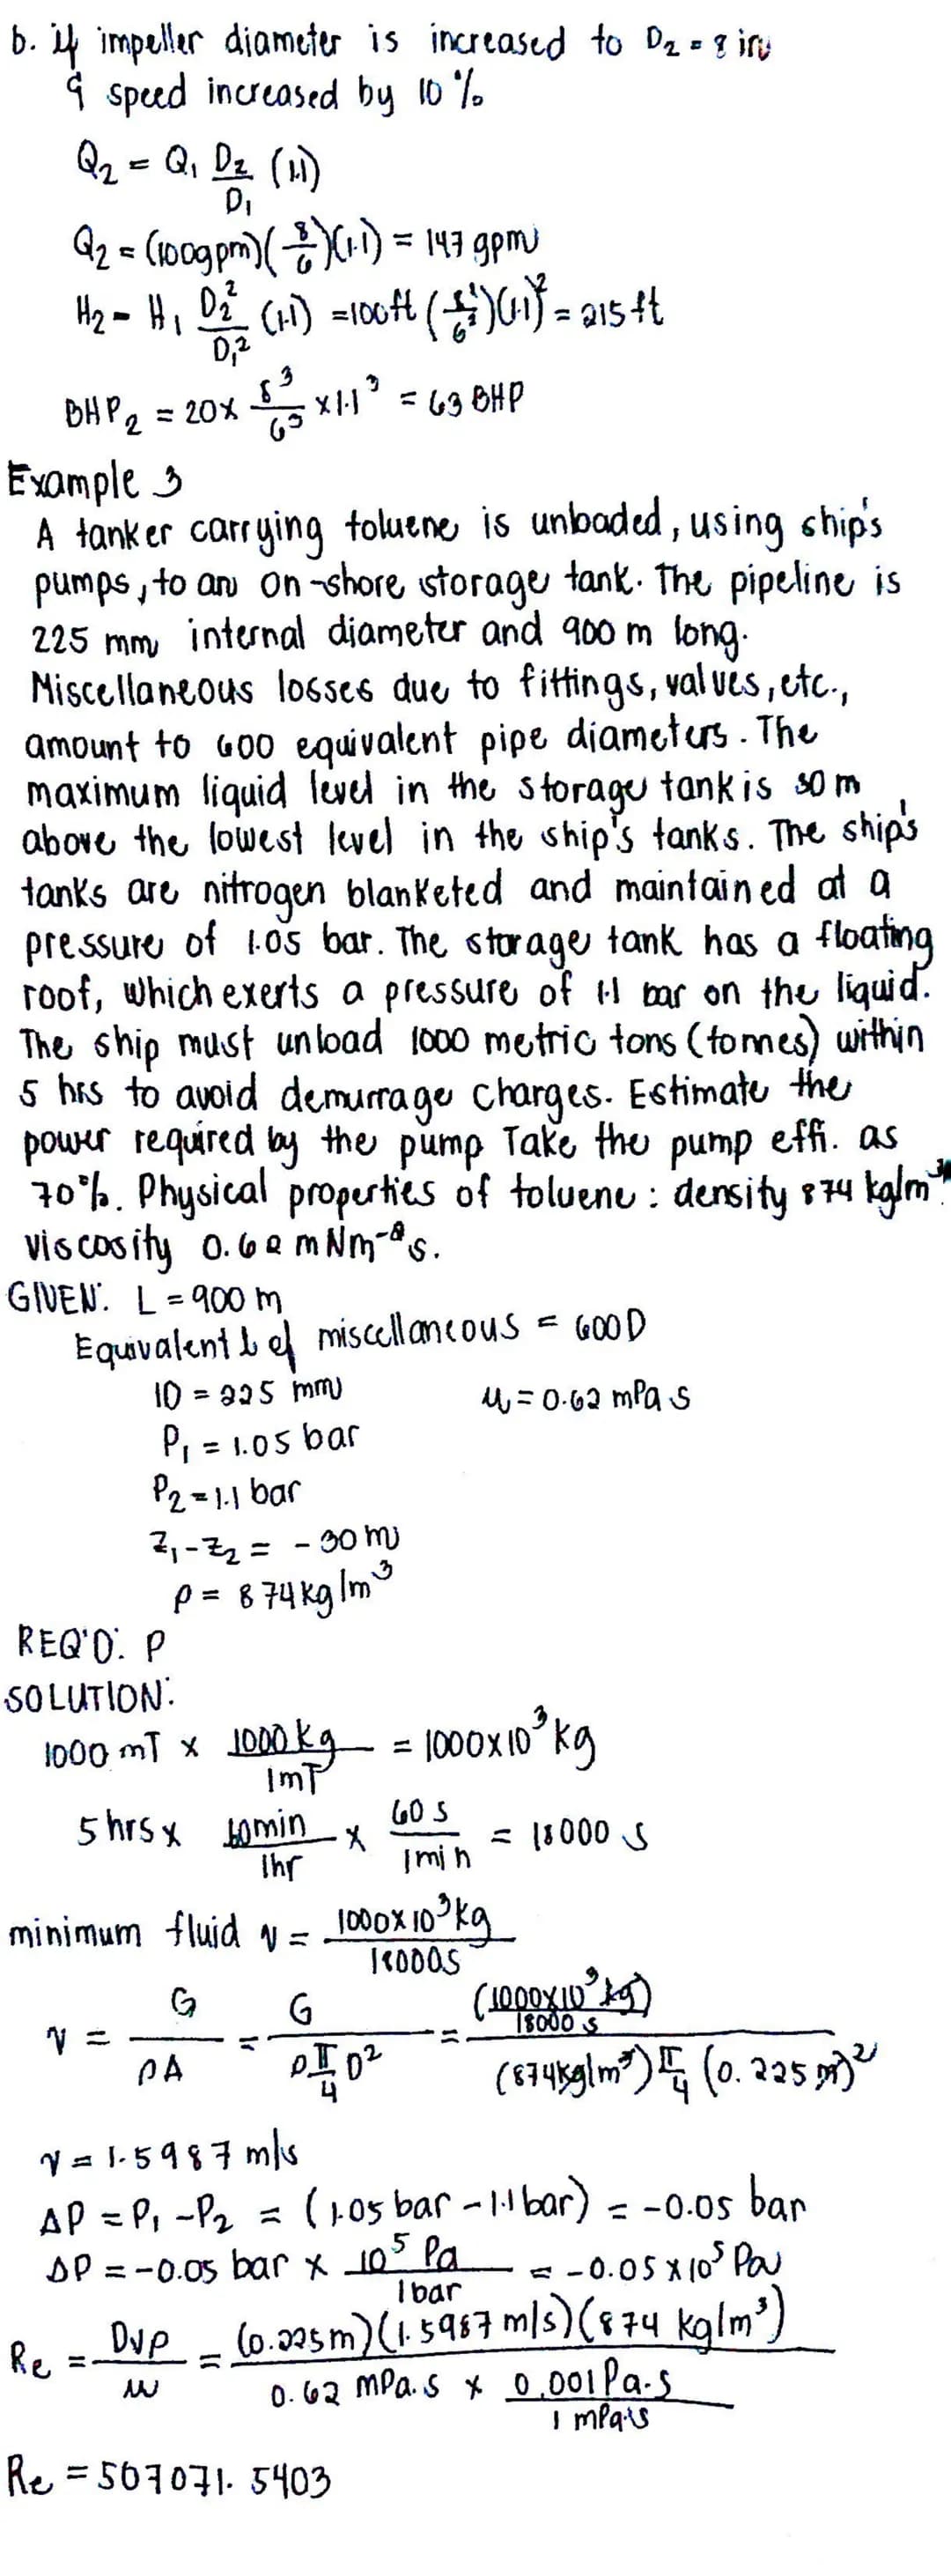 b. if impeller diameter is increased to D₂ = 8 in
& speed increased by 10%
Q₂ = Q₁ D₂/D₁ (1.1)
Q₂ = (100gpm)(8/6)(1.1) = 147 gpm
H₂ = H₁ D₂²/D₁² (1.1) = 100ft (8²/6²)(1.1)² = 215 ft
BHP₂ = 20 x 8³/6³ x 1.1³ = 63 BHP
Example 3
A tanker carrying toluene is unloaded, using ship's
pumps, to an on-shore storage tank. The pipeline is
225 mm internal diameter and 900 m long.
Miscellaneous losses due to fittings, valves, etc.,
amount to 600 equivalent pipe diameters. The
maximum liquid level in the storage tank is 30 m
above the lowest level in the ship's tanks. The ship's
tanks are nitrogen blanketed and maintained at a
pressure of 1.05 bar. The storage tank has a floating
roof, which exerts a pressure of 1.1 bar on the liquid.
The ship must unload 1000 metric tons (tonnes) within
5 hrs to avoid demurrage charges. Estimate the
power required by the pump Take the pump effi. as
70%. Physical properties of toluene: density 874 kg/m³.
viscosity 0.62 mNm⁻²s.
GIVEN: L = 900 m
Equivalent L of miscellaneous = 600D
ID = 225 mm μ = 0.62 mPa.s
P₁ = 1.05 bar
P₂ = 1.1 bar
Z₁ - Z₂ = - 30 m
ρ = 874 kg/m³
REQ'D: P
SOLUTION:
1000 mT x 1000 kg/1mT = 1000x10³ kg
5 hrs x 60min/1hr x 60 s/1min = 18000 s
minimum fluid v = 1000x10³kg/18000s
v = G/ρA = G/ρ π/4 D² = (1000x10³ kg/18000 s)/(874kg/m³) π/4 (0.225 m)²
v = 1.5987 m/s
ΔP = P₁ - P₂ = (1.05 bar - 1.1 bar) = -0.05 bar
ΔP = -0.05 bar x 10⁵ Pa/1 bar = -0.05 x10⁵ Pa
Re = Dvρ/μ = (0.225m)(1.5987 m/s)(874 kg/m³)/0.62 mPa.s x 0.001Pa.s/1 mPa.s
Re = 507071.5403